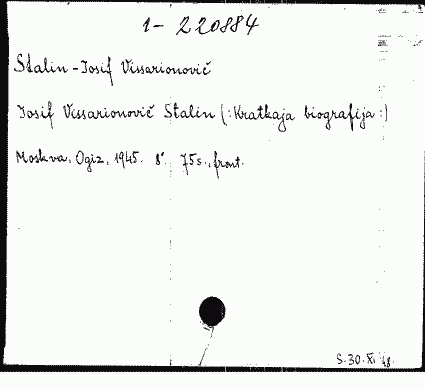 1-220884
Stalin - Josif Vissarionovič
Josif Vissarionovič Stalin (:Kratkaja biografija:)
Moskva, Ogiz, 1945. 8°. 75 s., front.
S. 30. XI. 48.